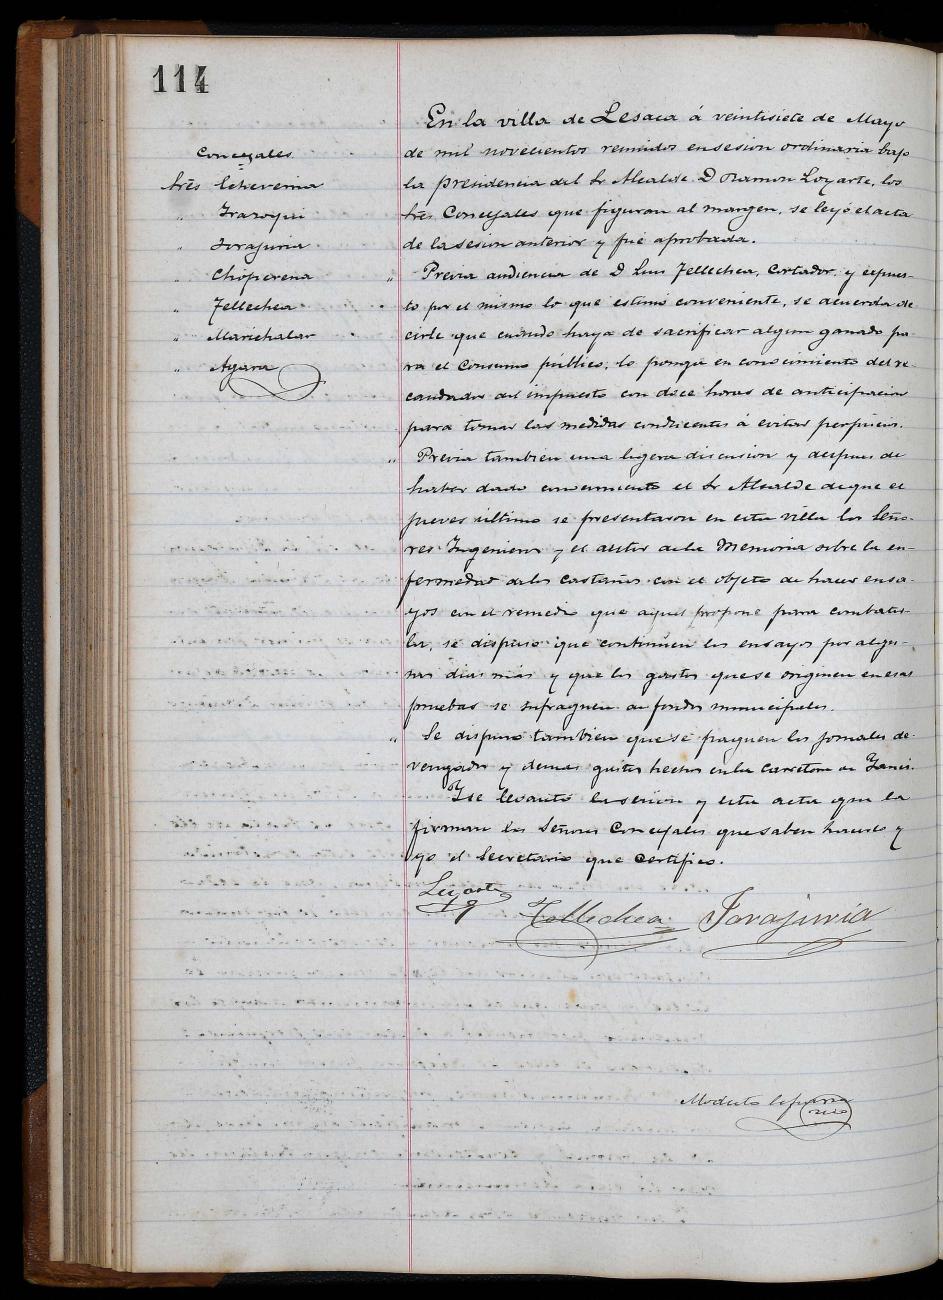 114
Concejales
Sres Echeverria
" Irazoqui
" Jorajuria
" Choperena
" Tellechea
" Marichalar
" Agara
En la villa de Lesaca á veintisiete de Mayo
de mil novecientos reunidos en sesion ordinaria bajo
la presidencia del Sr Alcalde D Ramon Loyarte, los
Sres Concejales que figuran al margen, se leyó el acta
de la sesion anterior y fué aprobada.
" Previa audiencia de D Luis Tellechea, Cortador, y espues-
to por el mismo lo que estimó conveniente, se acuerda de
cirle que cuándo haya de sacrificar algun ganado pa-
ra el consumo público, lo ponga en conocimiento del re-
caudador del impuesto con doce horas de anticipacion
para tomar las medidas conducentes á evitar perjuicios.
" Previa tambien una ligera discusion y despues de
haber dado conocimiento el Sr Alcalde de que el
jueves último se presentaron en esta villa los Seño-
res Ingenieros y el autor de la Memoria sobre la en-
fermedad de los castaños con el objeto de hacer ensa-
yos con el remedio que aquel propone para combatir-
la, se dispuso que continúen los ensayos por algu-
nos dias más y que los gastos que se originen en esas
pruebas se sufraguen de fondos municipales.
" Se dispuso tambien que se paguen los jornales de-
vengados y demas gastos hechos en la carretera de Yanci.
Y se levantó la sesion y esta acta que la
firman los Señores Concejales que saben hacerlo y
yo el Secretario que certifico.
Loyarte
Tellechea Jorajuria
Modesto